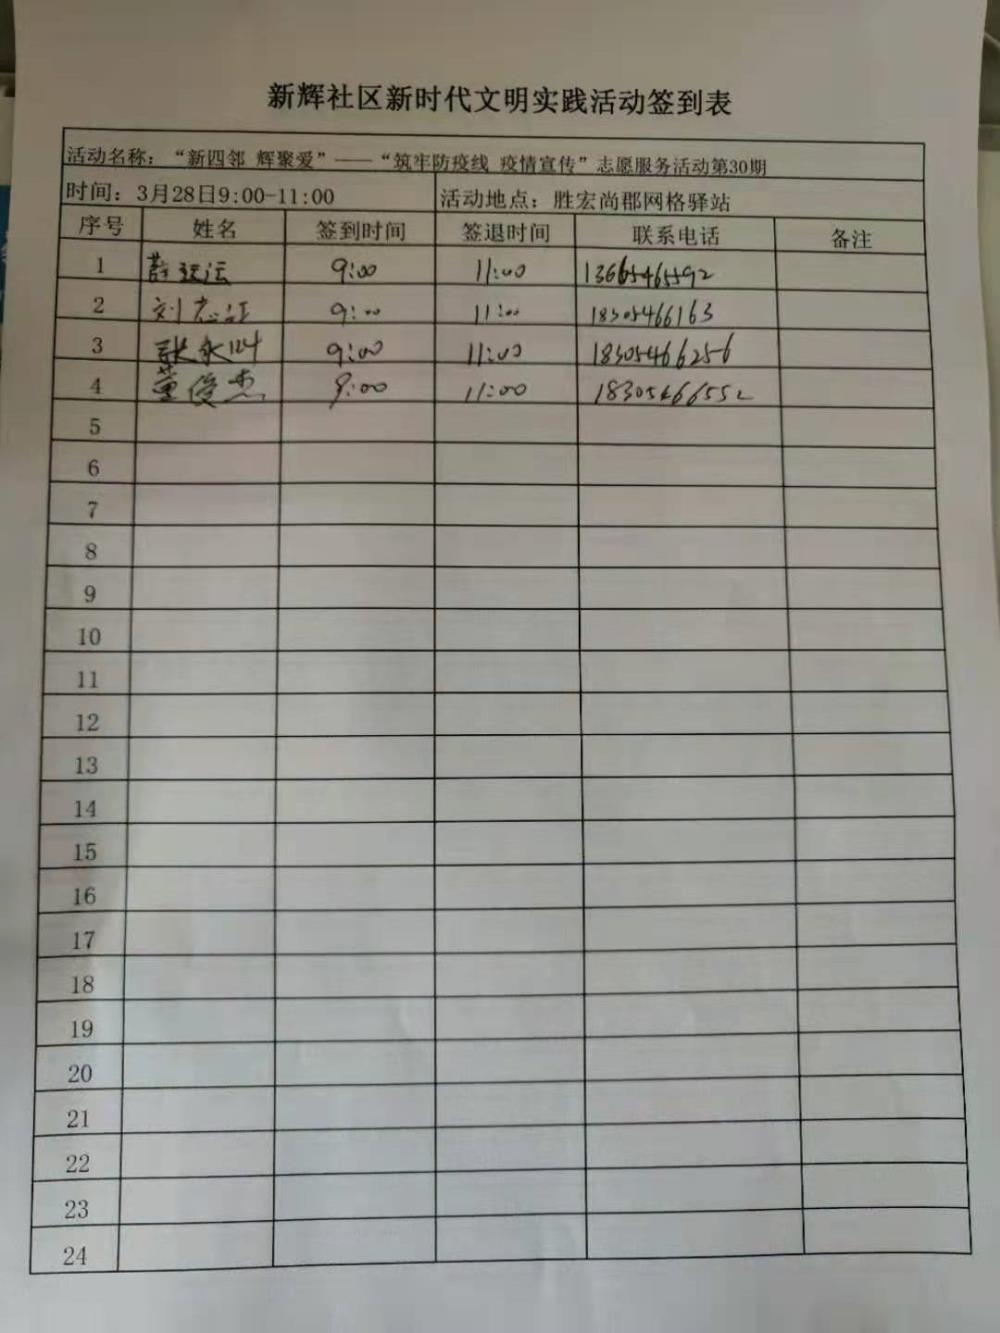 新辉社区新时代文明实践活动签到表
活动名称：“新四邻 辉聚爱”——“筑牢防疫线 疫情宣传”志愿服务活动第30期
时间：3月28日9:00-11:00 活动地点：胜宏尚郡网格驿站
序号 姓名 签到时间 签退时间 联系电话 备注
1 9:00 11:00 13665465592
2 刘志江 9:00 11:00 18305466163
3 张永 9:00 11:00 18305466256
4 董俊杰 9:00 11:00 18305466552
5
6
7
8
9
10
11
12
13
14
15
16
17
18
19
20
21
22
23
24